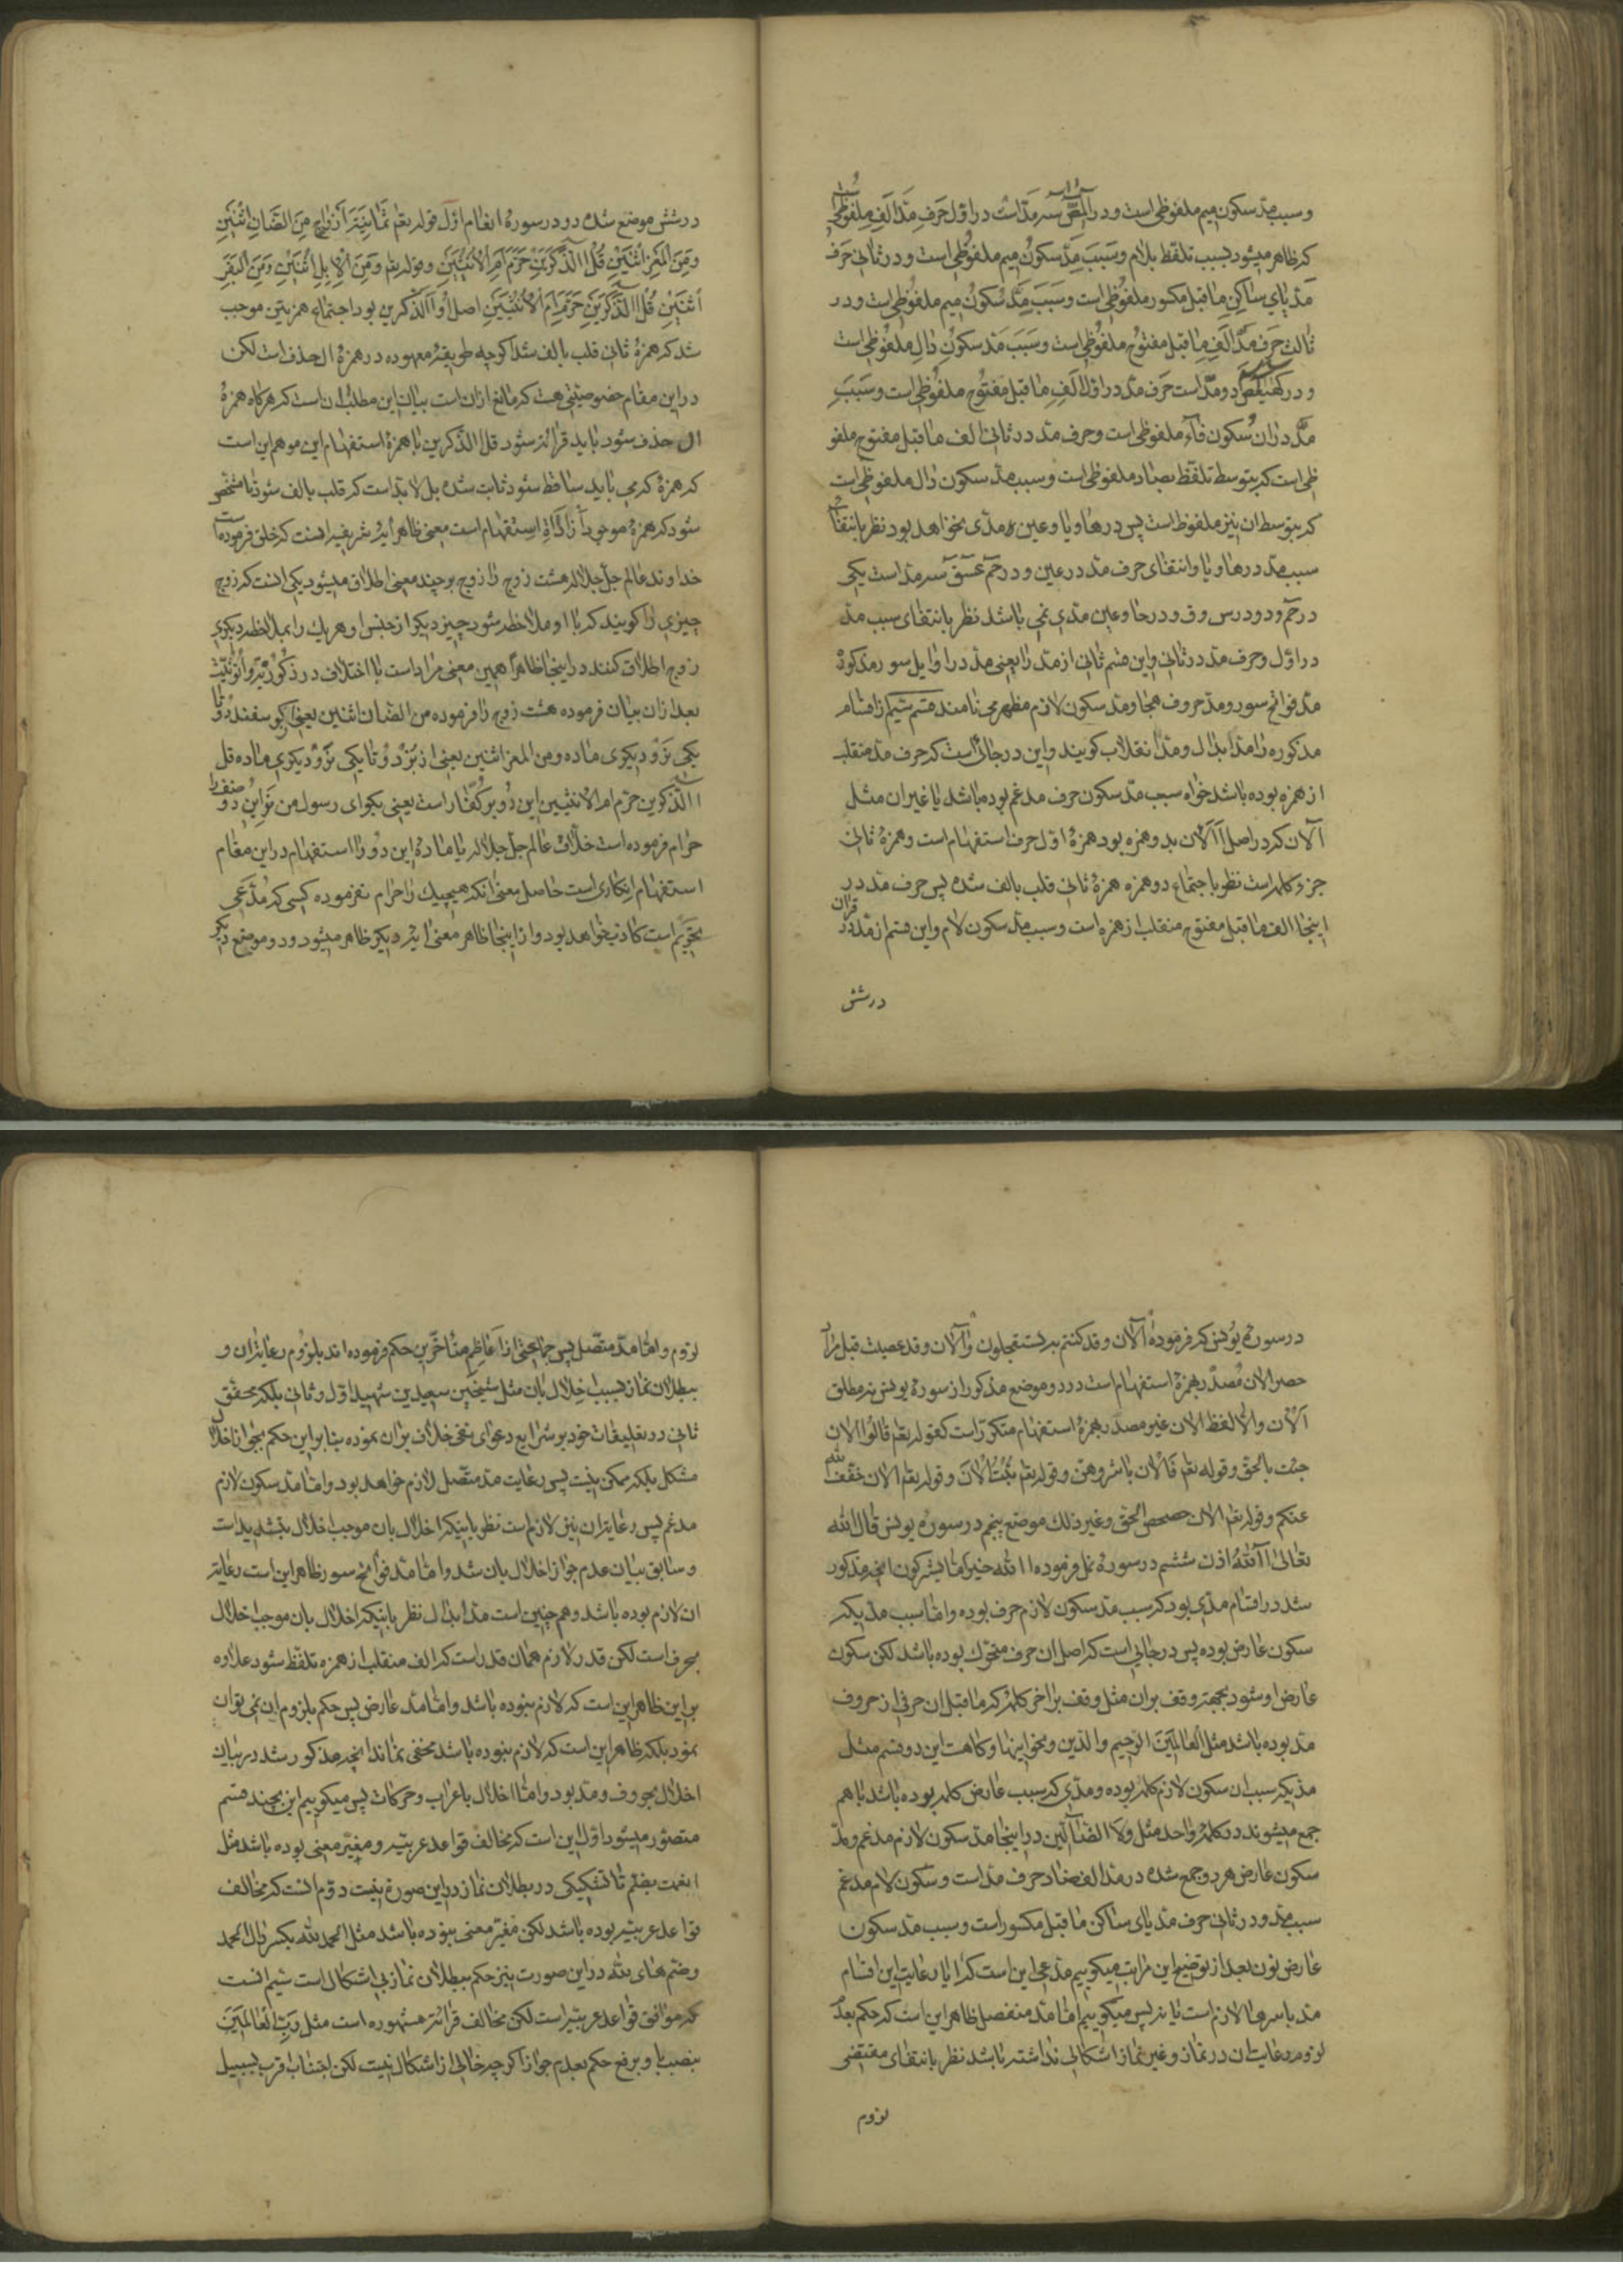 و سبب مد سکون میم ملفوظی است و در المص سه مد است در اول حرف مد الف ملفوظی است
که ظاهر میشود بسبب تلفظ بلام و سبب مد سکون میم ملفوظی است و در ثانی حرف
مد یای ساکن ما قبل مکسور ملفوظی است و سبب مد سکون میم ملفوظی است و در
ثالث حرف مد الف ما قبل مفتوح ملفوظی است و سبب مد سکون دال ملفوظی است
و در کهیعص دو مد است حرف مد در اول الف ما قبل مفتوح ملفوظی است و سبب
مد در ان سکون فاء ملفوظی است و حرف مد در ثانی الف ما قبل مفتوح ملفو
ظی است که بتوسط تلفظ بصاد ملفوظی است و سبب مد سکون دال ملفوظی است
که بتوسط ان نیز ملفوظ است پس در ها و یا و عین مدی نخواهد بود نظر بانتفای
سبب مد در ها و یا و انتفای حرف مد در عین و در حم عسق سه مد است یکی
در حم و دو در س و ق و در حا و عین مدی نمی باشد نظر بانتفای سبب مد
در اول و حرف مد در ثانی و این قسم ثانی از مد را یعنی مد در اوایل سور مذکوره
مد فواتح سور و مد حروف هجا و مد سکون لازم مظهر می نامند قسم ششم از اقسام
مذکوره را مد ابدال و مد انقلاب کویند و این در جائی است که حرف مد منقلب
از همزه بوده باشد خواه سبب مد سکون حرف مدغم بوده باشد یا غیر ان مثل
آلان که در اصل أألان بدو همزه بود همزهٔ اول حرف استفهام است و همزهٔ ثانی
جزء کلمه است نظر باجتماع دو همزه همزهٔ ثانی قلب بالف شده پس حرف مد در
اینجا الف ما قبل مفتوح منقلب از همزه است و سبب مد سکون لام و این قسم از مد در قران
در شش
در شش موضع شده دو در سورهٔ انعام اول قوله تعم ثمانیة ازواج من الضان اثنین
و من المعز اثنین قل الذکرین حرم ام الانثیین و قوله تعم و من الابل اثنین و من البقر
اثنین قل الذکرین حرم ام الانثیین اصل او أالذکرین بود اجتماع همزتین موجب
شد که همزهٔ ثانی قلب بالف شد اکر چه طریقهٔ معهوده در همزهٔ ال حذف است لکن
در این مقام خصوصیتی هست که مانع از ان است بیان این مطلب ان است که هر کاه همزهٔ
ال حذف شود باید قرائة شود قل الذکرین با همزهٔ استفهام این موهم این است
که همزهٔ که می باید ساقط شود ثابت شده بل لا بد است که قلب بالف شود تا مشخص
شود که همزهٔ موجود اداة استفهام است معنی ظاهر آیهٔ شریفه اینست که خلق فرموده است
خداوند عالم جل جلاله هشت زوج را زوج بر چند معنی اطلاق میشود یکی انست که زوج
چیزی را کویند که با او ملاحظه شود چیز دیکر از جنس او و هر یک را بملاحظه دیکری
زوج اطلاق کنند در اینجا ظاهرا همین معنی مراد است با اختلاف در ذکوریة و انوثیت
بعد از ان بیان فرموده هشت زوج را فرموده من الضان اثنین یعنی از کوسفند دو تا
یکی نر و دیکری ماده و من المعز اثنین یعنی از بز دو تا یکی نر و دیکری ماده قل
االذکرین حرم ام الانثیین این دو بر کفار است یعنی بکو ای رسول من نر این دو صنف را
حرام فرموده است خلاق عالم جل جلاله یا مادهٔ این دو را استفهام در این مقام
استفهام انکاری است حاصل معنی انکه هیچیک را حرام نفرموده کسی که مدعی
تحریم است کاذب خواهد بود و از اینجا ظاهر معنی ایهٔ دیکر ظاهر میشود و دو موضع دیکر
در سورهٔ یونس که فرموده آلان و قد کنتم به تستعجلون و آلان و قد عصیت قبل مراد
حصر الان مصدر بهمزهٔ استفهام است در دو موضع مذکور از سورهٔ یونس نه مطلق
الان و الا لفظ الان غیر مصدر بهمزهٔ استفهام متکرر است کقوله تعم قالوا الان
جئت بالحق و قوله تعم فالان باشروهن و قوله تعم تبت الان و قوله تعم الان خفف الله
عنکم و قوله تعم الان حصحص الحق و غیر ذلک موضع پنجم در سورهٔ یونس قال الله
تعالی آلله اذن ششم در سورهٔ نمل فرموده االله خیر اما یشرکون انچه مذکور
شد در اقسام مدی بود که سبب مد سکون لازم حرف بوده و اما سبب مدیکه
سکون عارض بوده پس در جائی است که اصل ان حرف متحرک بوده باشد لکن سکون
عارض او شود بجهة وقف بران مثل وقف بر اخر کلمهٔ که ما قبل ان حرفی از حروف
مد بوده باشد مثل العالمین الرحیم و الدین و نحو اینها و کاهست این دو قسم مثل
مدیکه سبب ان سکون لازم کلمه بوده و مدی که سبب عارض کلمه بوده باشد با هم
جمع میشوند در کلمهٔ واحد مثل ولا الضالین در اینجا مد سکون لازم مدغم و مد
سکون عارض هر دو جمع شده در مد الف ضاد حرف مد است و سکون لام مدغم
سبب مد و در ثانی حرف مد یای ساکن ما قبل مکسور است و سبب مد سکون
عارض نون بعد از توضیح این مراتب میکوییم مدعی این است که ایا رعایت این اقسام
مد باسرها لازم است یا نه پس میکوییم اما مد منفصل ظاهر این است که حکم بعدم
لزوم رعایت ان در نماز و غیر نماز اشکالی نداشته باشد نظر بانتفای مقتضی
لزوم
لزوم و اما مد متصل پس جماعتی از اعاظم متأخرین حکم فرموده اند بلزوم رعایة ان و
ببطلان نماز بسبب اخلال بان مثل شیخین سعیدین شهید اول و ثانی بلکه محقق
ثانی در تعلیقات خود بر شرایع دعوای نفی خلاف بران نموده بنا بر این حکم بجواز اخلال
مشکل بلکه ممکن نیست پس رعایت مد متصل لازم خواهد بود و اما مد سکون لازم
مدغم پس رعایة ان نیز لازم است نظر باینکه اخلال بان موجب اخلال بتشدید است
و سابق بیان عدم جواز اخلال بان شد و اما مد فواتح سور ظاهر این است رعایة
ان لازم بوده باشد و هم چنین است مد ابدال نظر باینکه اخلال بان موجب اخلال
بحرف است لکن قدر لازم همان قدر است که الف منقلب از همزه تلفظ شود علاوه
بر این ظاهر این است که لازم نبوده باشد و اما مد عارض پس حکم بلزوم ان نمی توان
نمود بلکه ظاهر این است که لازم نبوده باشد مخفی نماند انچه مذکور شد در بیان
اخلال بحروف و مد بود و اما اخلال باعراب و حرکات پس میکوییم این بچند قسم
متصور میشود اول این است که مخالف قواعد عربیه و مغیر معنی بوده باشد مثل
انعمت بضم تا تشکیکی در بطلان نماز در این صورة نیست دوم انست که مخالف
قواعد عربیه بوده باشد لکن مغیر معنی نبوده باشد مثل الحمد لله بکسر دال الحمد
و ضم های لله در این صورت نیز حکم ببطلان نماز بی اشکال است سیم انست
که موافق قواعد عربیه است لکن مخالف قرائة مشهوره است مثل رب العالمین
بنصب با و برفع حکم بعدم جواز اکر چه خالی از اشکال نیست لکن اجتناب اقرب بسبیل